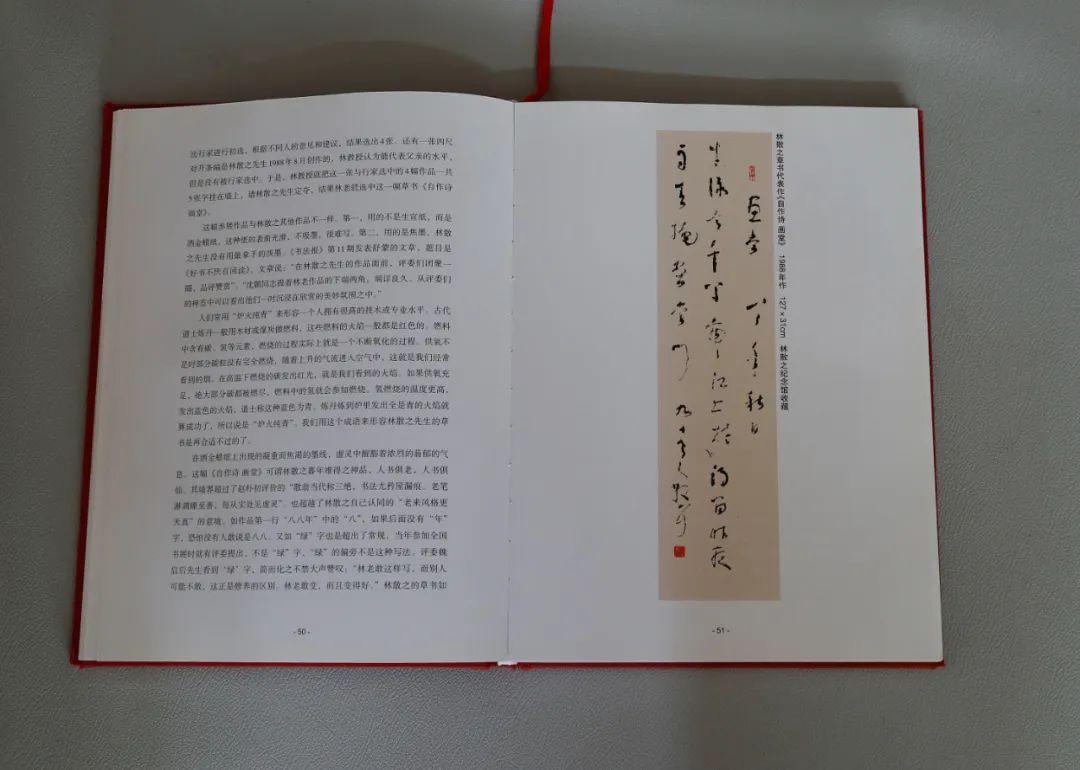 沈行家进行初选，根据不同人的意见和建议，结果选出4张。还有一张四尺
对开条幅是林散之先生1988年8月创作的，林教授认为能代表父亲的水平，
但是没有被行家选中。于是，林教授就把这一张与行家选中的4幅作品一共
5张字挂在墙上，请林散之先生定夺，结果林老就选中这一幅草书《自作诗
画堂》。
这幅参赛作品与林散之其他作品不一样。第一，用的不是生宣纸，而是
洒金蜡纸，这种纸的表面光滑，不吸墨，很难写。第二，用的是焦墨，林散
之先生没有用最拿手的淡墨。《书法报》第11期发表舒蒙的文章，题目是
《好书不厌百回读》。文章说：“在林散之先生的作品面前，评委们团聚一
圈，品评赞赏”。“沈鹏同志提着林老作品的下端两角，端详良久。从评委们
的神态中可以看出他们一时沉浸在欣赏的美妙氛围之中。”
人们常用“炉火纯青”来形容一个人拥有很高的技术或专业水平。古代
道士炼丹一般用木材或煤炭做燃料，这些燃料的火焰一般都是红色的。燃料
中含有碳、氢等元素，燃烧的过程实际上就是一个不断氧化的过程。供氧不
足时部分碳粒没有完全燃烧，随着上升的气流进入空气中，这就是我们经常
看到的烟。在高温下燃烧的碳发出红光，就是我们看到的火焰。如果供氧充
足，绝大部分碳都被燃尽，燃料中的氢就会参知燃烧。氢燃烧的温度更高，
发出蓝色的火焰，道士称这种蓝色为青。炼丹炼到炉里发出全是青的火焰就
算成功了，所以说是“炉火纯青”。我们用这个成语来形容林散之先生的草
书是再合适不过的了。
在洒金蜡纸上出现的凝重而焦渴的墨线，虚灵中醒豁着浓烈的蓊郁的气
息。这幅《自作诗 画堂》可谓林散之暮年难得之神品，人书俱老，人书俱
仙。其境界超过了赵朴初评价的“散翁当代称三绝，书法尤矜屋漏痕。老笔
淋漓臻至善，每从实处见虚灵”。也超越了林散之自己认同的“老来风格更
天真”的意境。如作品第一行“八八年”中的“八”，如果后面没有“年”
字，恐怕没有人敢说是八八。又如“绿”字也是超出了常规，当年参加全国
书赛时就有评委提出，不是“绿”字，“绿”的偏旁不是这种写法。评委魏
启后先生看到“绿”字，简而化之不禁大声赞叹：“林老敢这样写，而别人
可能不敢，这正是修养的区别。林老敢变，而且变得好。”林散之的草书如
- 50 -
林散之草书代表作《自作诗 画堂》 1988年作 127×31cm 林散之纪念馆收藏
- 51 -